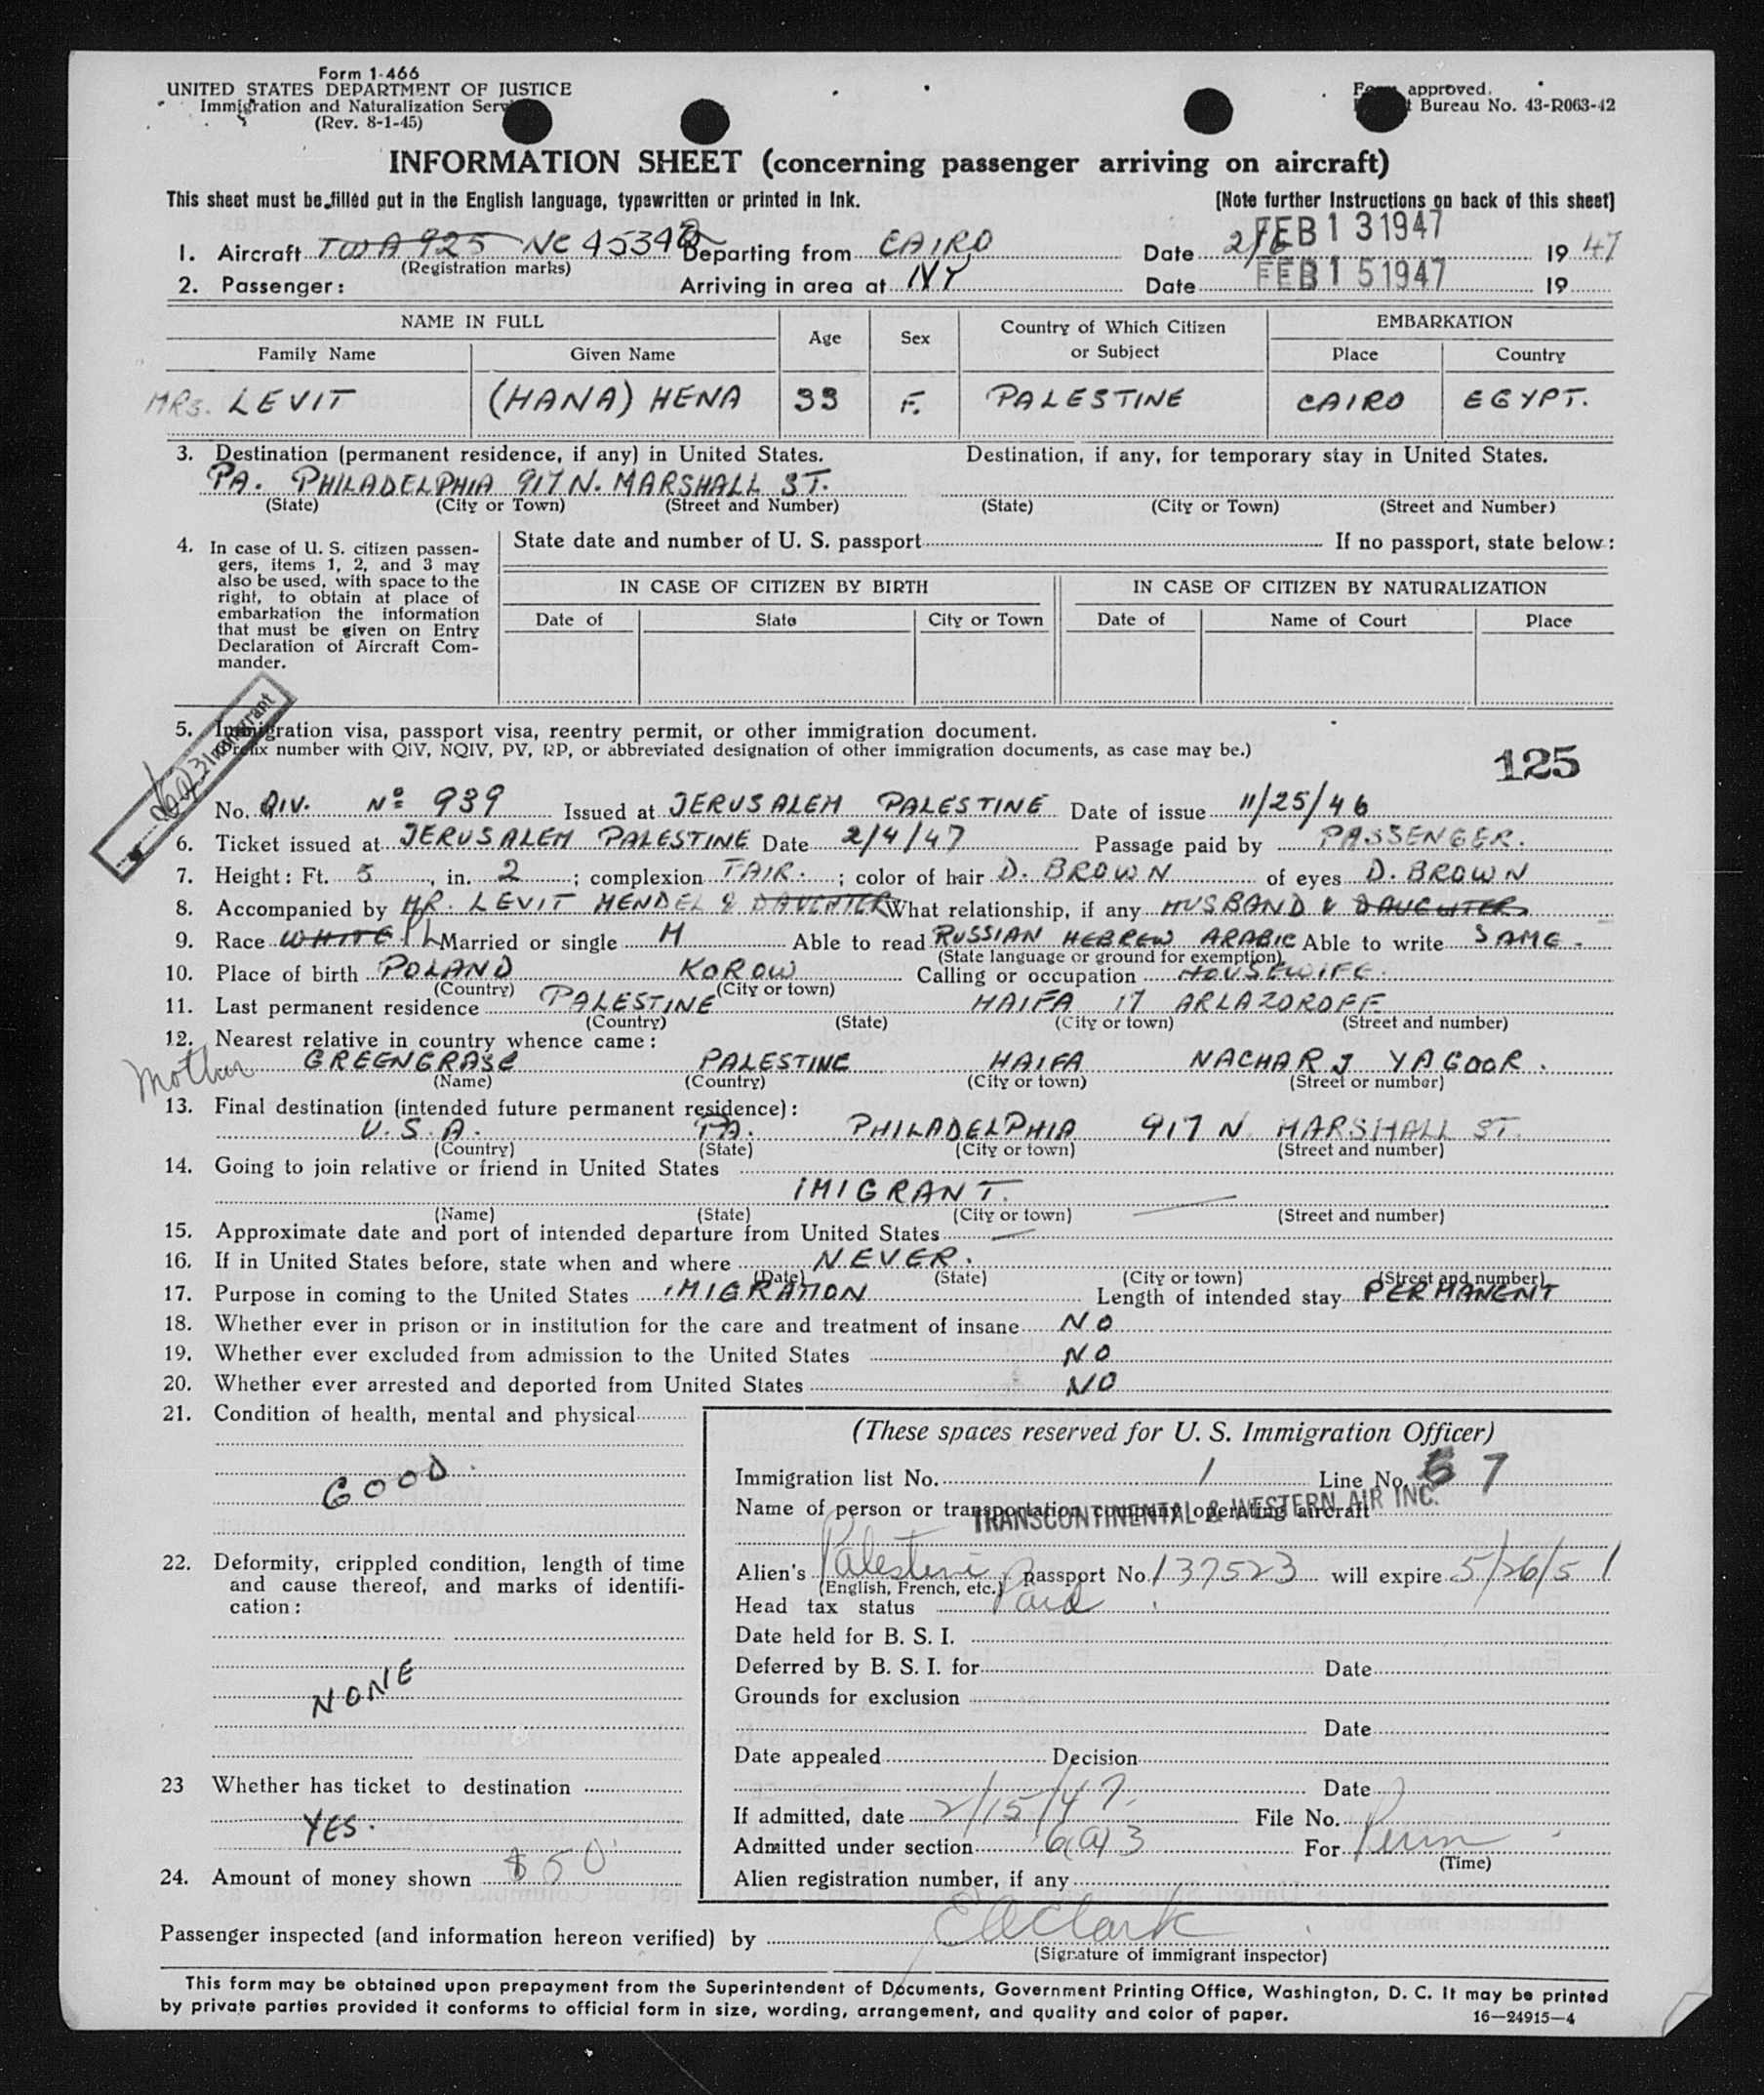 Form 1-466
UNITED STATES DEPARTMENT OF JUSTICE
Immigration and Naturalization
(Rev. 8-1-45)
approved.
Bureau No. 43-R063-42
INFORMATION SHEET (concerning passenger arriving on aircraft)
This sheet must be filled out in the English language, typewritten or printed in Ink. (Note further Instructions on back of this sheet)
FEB 13 1947
1. Aircraft TWA 925 NC 45342 Departing from CAIRO Date 2/6 19 47
(Registration marks)
FEB 15 1947
2. Passenger: Arriving in area at NY Date 19
NAME IN FULL Age Sex Country of Which Citizen or Subject EMBARKATION
Family Name Given Name Place Country
MRS. LEVIT (HANA) HENA 33 F. PALESTINE CAIRO EGYPT.
3. Destination (permanent residence, if any) in United States. Destination, if any, for temporary stay in United States.
PA. PHILADELPHIA 917 N. MARSHALL ST.
(State) (City or Town) (Street and Number) (State) (City or Town) (Street and Number)
4. In case of U. S. citizen passen-
gers, items 1, 2, and 3 may
also be used, with space to the
right, to obtain at place of
embarkation the information
that must be given on Entry
Declaration of Aircraft Com-
mander.
State date and number of U. S. passport If no passport, state below:
IN CASE OF CITIZEN BY BIRTH IN CASE OF CITIZEN BY NATURALIZATION
Date of State City or Town Date of Name of Court Place
5. Immigration visa, passport visa, reentry permit, or other immigration document.
(Prefix number with QIV, NQIV, PV, RP, or abbreviated designation of other immigration documents, as case may be.)
Immigrant
125
No. QIV. Nº 939 Issued at JERUSALEM PALESTINE Date of issue 11/25/46
6. Ticket issued at JERUSALEM PALESTINE Date 2/4/47 Passage paid by PASSENGER.
7. Height: Ft. 5, in. 2; complexion FAIR.; color of hair D. BROWN of eyes D. BROWN
8. Accompanied by MR. LEVIT MENDEL & DAUGHTER What relationship, if any HUSBAND & DAUGHTER
9. Race WHITE Married or single M Able to read RUSSIAN HEBREW ARABIC Able to write SAME.
(State language or ground for exemption)
10. Place of birth POLAND KOROW Calling or occupation HOUSEWIFE.
(Country) (City or town)
11. Last permanent residence PALESTINE HAIFA 17 ARLAZOROFF
(Country) (State) (City or town) (Street and number)
12. Nearest relative in country whence came:
Mother GREENGRASE PALESTINE HAIFA NACHAR J YAGOOR.
(Name) (Country) (City or town) (Street or number)
13. Final destination (intended future permanent residence):
U.S.A. PA. PHILADELPHIA 917 N. MARSHALL ST.
(Country) (State) (City or town) (Street and number)
14. Going to join relative or friend in United States
IMIGRANT.
(Name) (State) (City or town) (Street and number)
15. Approximate date and port of intended departure from United States —
16. If in United States before, state when and where NEVER.
(Date) (State) (City or town) (Street and number)
17. Purpose in coming to the United States IMIGRATION Length of intended stay PERMANENT
18. Whether ever in prison or in institution for the care and treatment of insane NO
19. Whether ever excluded from admission to the United States NO
20. Whether ever arrested and deported from United States NO
21. Condition of health, mental and physical
GOOD.
22. Deformity, crippled condition, length of time
and cause thereof, and marks of identifi-
cation:
NONE
23 Whether has ticket to destination
YES.
24. Amount of money shown $50
(These spaces reserved for U. S. Immigration Officer)
Immigration list No. 1 Line No. 7
Name of person or transportation company operating aircraft
TRANSCONTINENTAL & WESTERN AIR INC.
Alien's Palestini passport No. 137523 will expire 5/26/51
(English, French, etc.)
Head tax status Paid
Date held for B. S. I.
Deferred by B. S. I. for Date
Grounds for exclusion
Date
Date appealed Decision
Date
If admitted, date 2/15/47. File No.
Admitted under section 6(a)3 For Perm
(Time)
Alien registration number, if any
Passenger inspected (and information hereon verified) by E A Clark
(Signature of immigrant inspector)
This form may be obtained upon prepayment from the Superintendent of Documents, Government Printing Office, Washington, D. C. It may be printed
by private parties provided it conforms to official form in size, wording, arrangement, and quality and color of paper.
16—24915—4